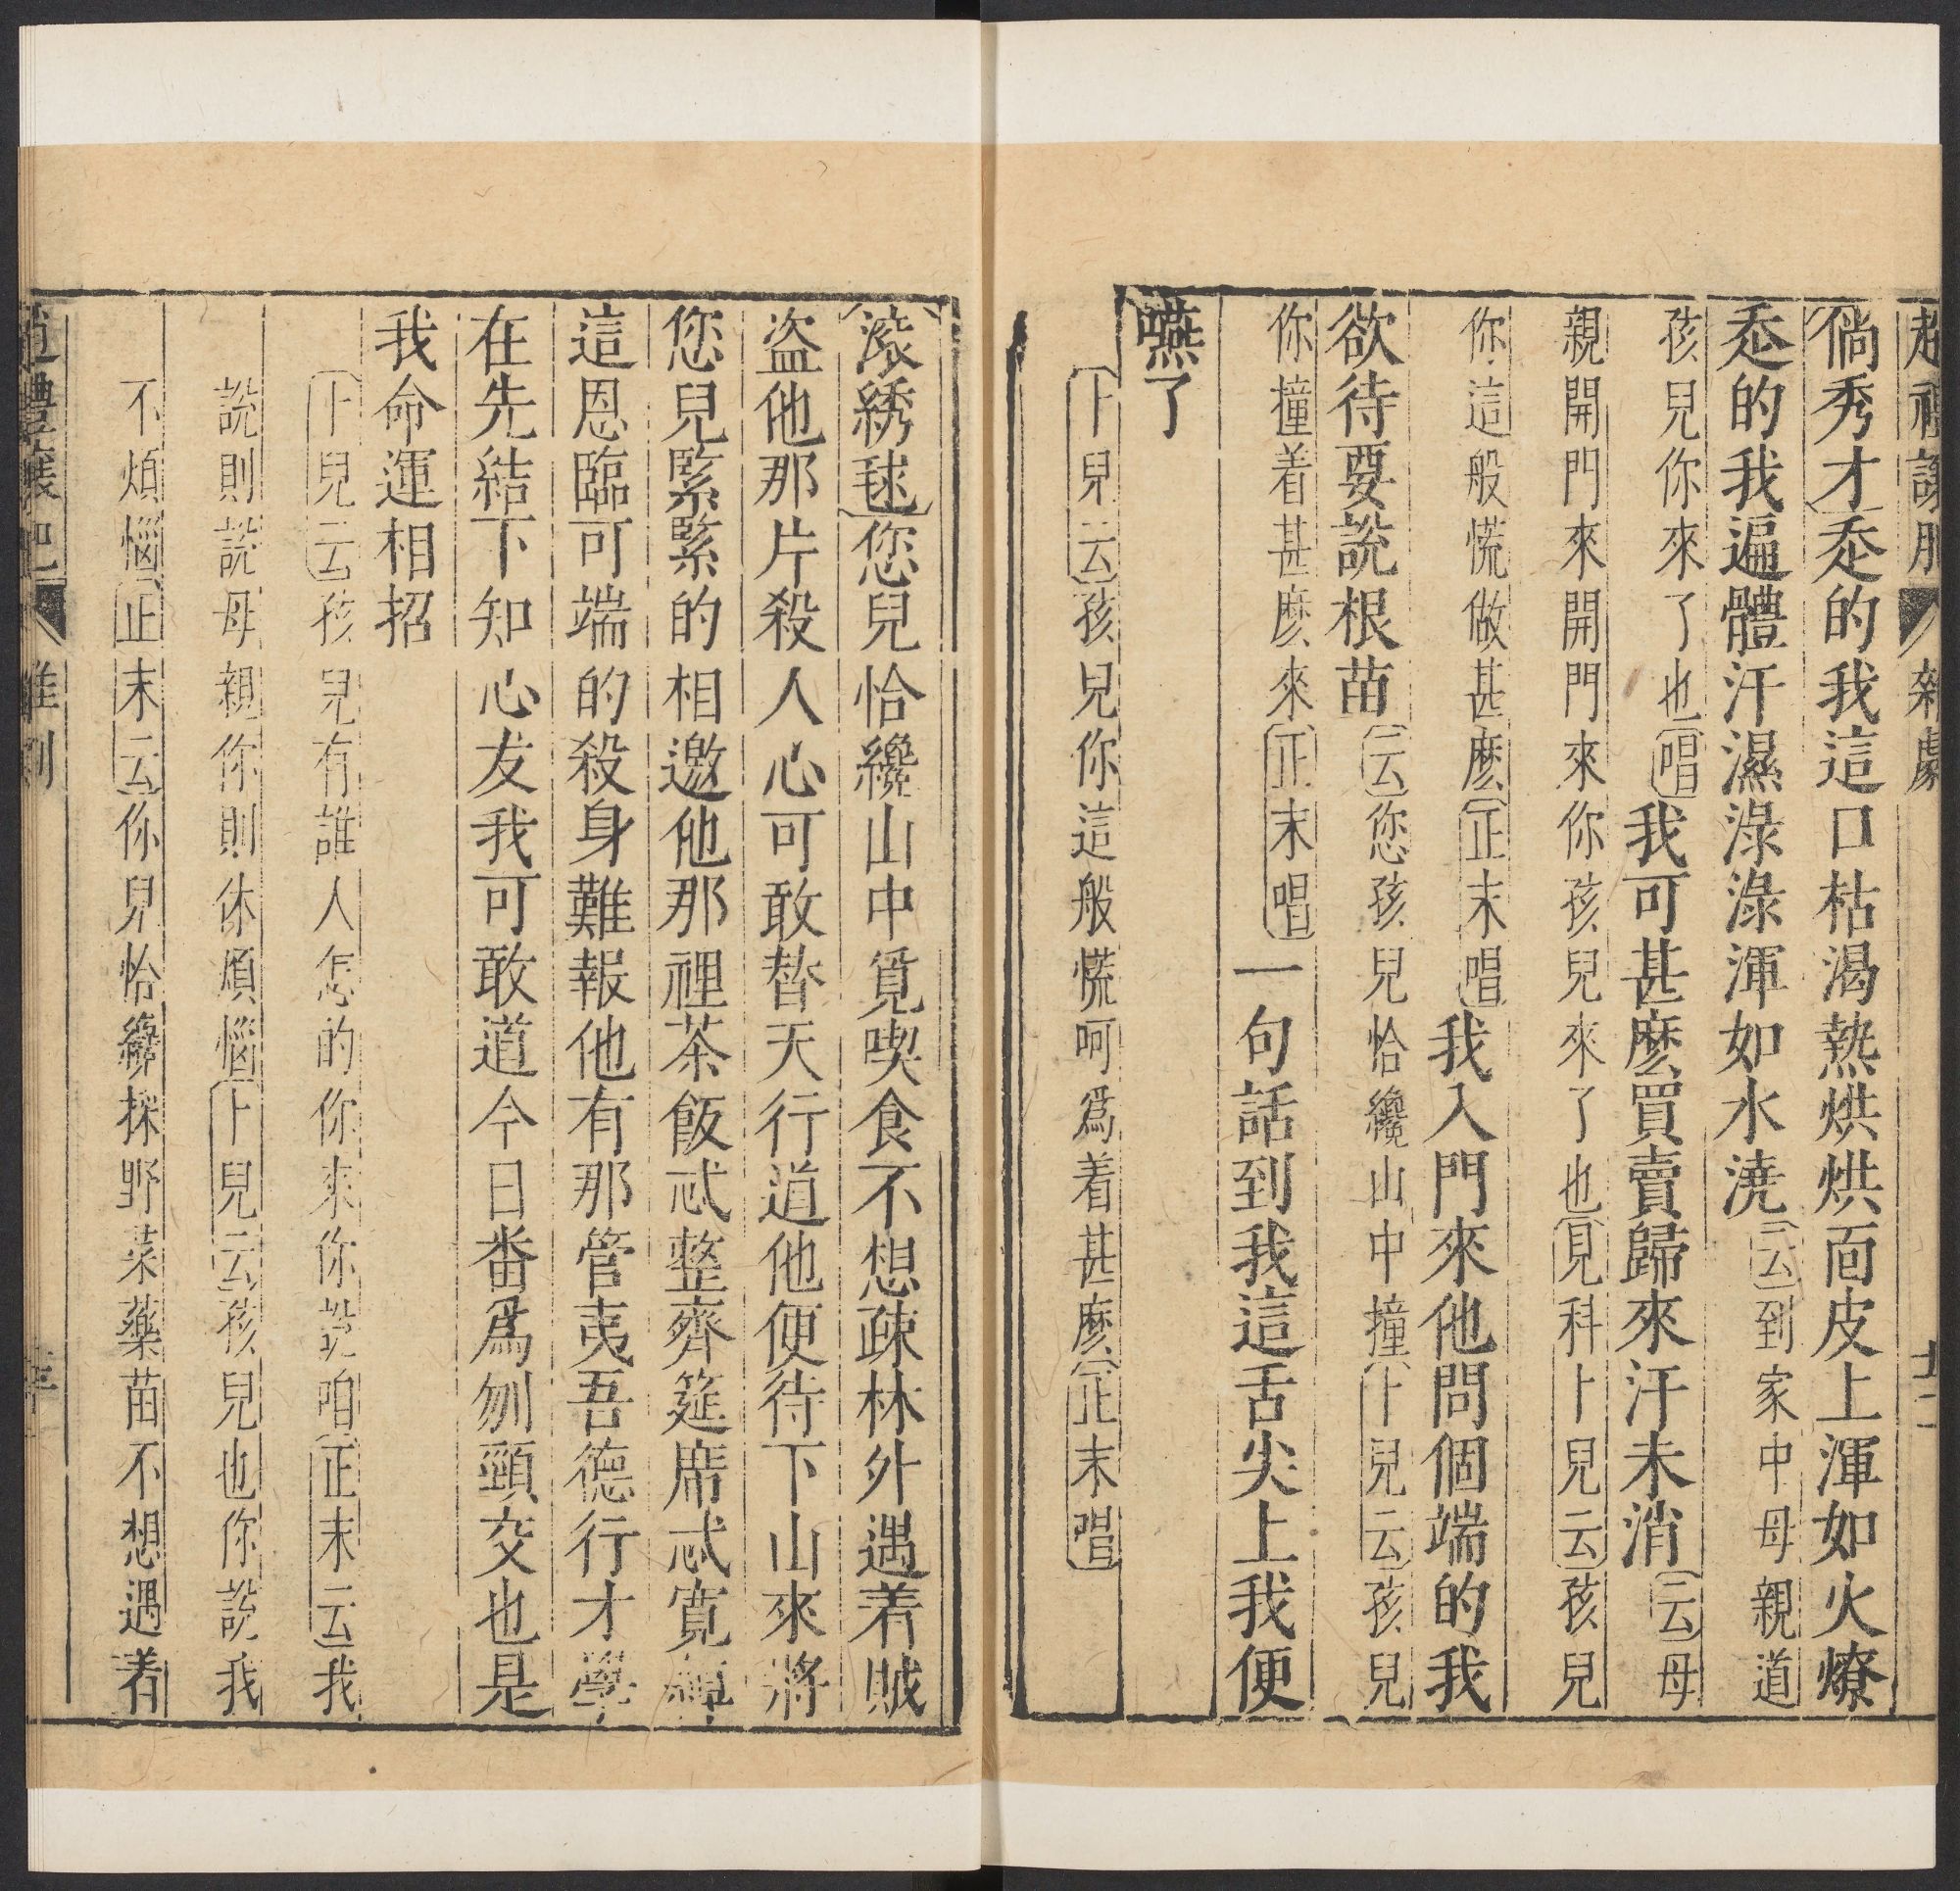 趙禮讓肥 雜劇
倘秀才 忝的我這口枯渴熱烘烘面皮上渾如火燎
忝的我遍體汗濕淥淥渾如水澆 云 到家中母親道
孩兒你來了也 唱 我可甚麽買賣歸來汗未消 云 母
親開門來開門來你孩兒來了也 見科卜兒云 孩兒
你這般慌做甚麽 正末唱 我入門來他問個端的我
欲待要說根苗 云 您孩兒恰纔山中撞 卜兒云 孩兒
你撞着甚麽來 正末唱 一句話到我這舌尖上我便
嚥了
卜兒云 孩兒你這般慌呵爲着甚麽 正末唱
滚綉毬 您兒恰纔山中覓喫食不想疎林外遇着賊
盗他那片殺人心可敢替天行道他便待下山來將
您兒緊緊的相邀他那裡茶飯忒整齊筵席忒寛綽
這恩臨可端的殺身難報他有那管夷吾德行才學
在先結下知心友我可敢道今日番爲刎頸交也是
我命運相招
卜兒云 孩兒有誰人怎的你來你說咱 正末云 我
說則說母親你則休煩惱 卜兒云 孩兒也你說我
不煩惱 正末云 你兒恰纔採野菜藥苗不想遇着
趙禮讓肥 雜劇